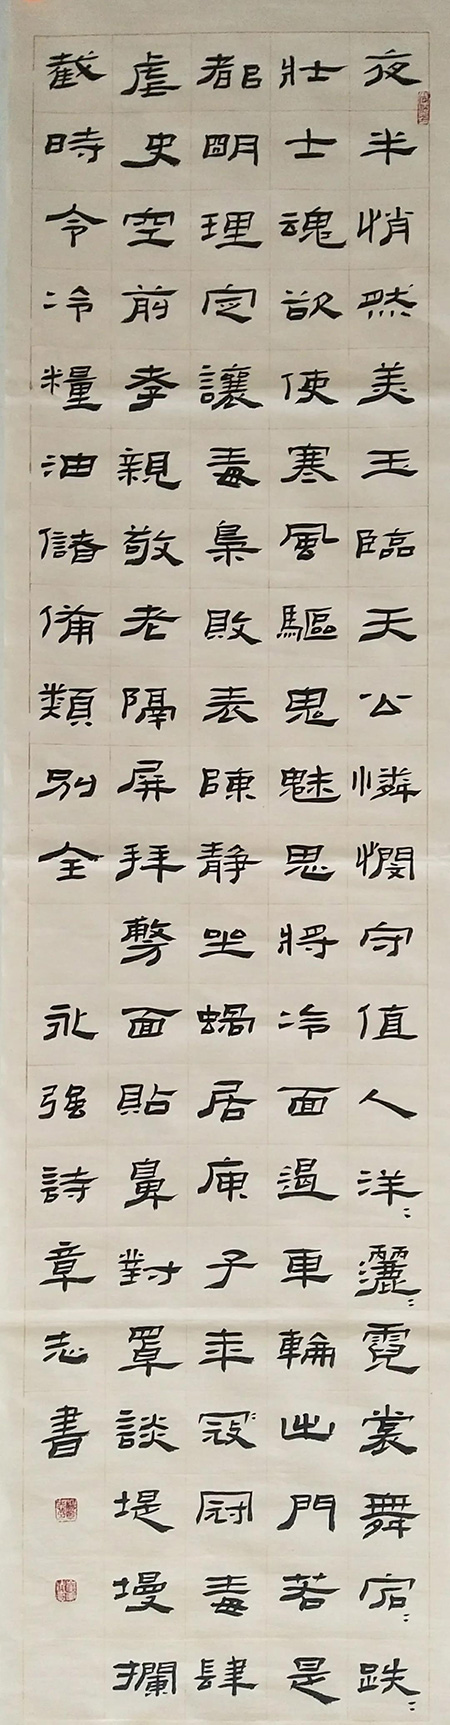 夜半悄然美玉臨天公憐憫守值人洋〻灑〻霓裳舞宕〻跌〻
壯士魂欲使寒風驅鬼魅思將冷面遏車輪出門若是
都明理定讓毒梟敗表陳靜坐蝸居庚子年寇冠毒肆
虐史空前孝親敬老隔屏拜面貼鼻對罩談堤墁攔
截時令冷糧油儲備類別全 永強詩章志書